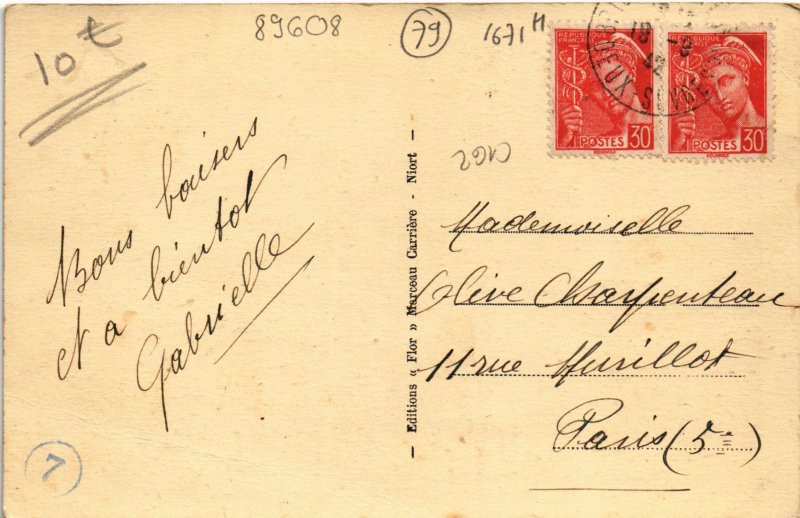 10€
89608
79
1671 H
RÉPUBLIQUE FRANÇAISE
POSTES 30
RÉPUBLIQUE FRANÇAISE
POSTES 30
18 -8
DEUX-SÈVRES
Bons baisers
et a bientot
Gabrielle
7
Editions « Flor » Marceau Carrière - Niort
Mademoiselle
Olive Charpenteau
11 rue Murillot
Paris (5e)